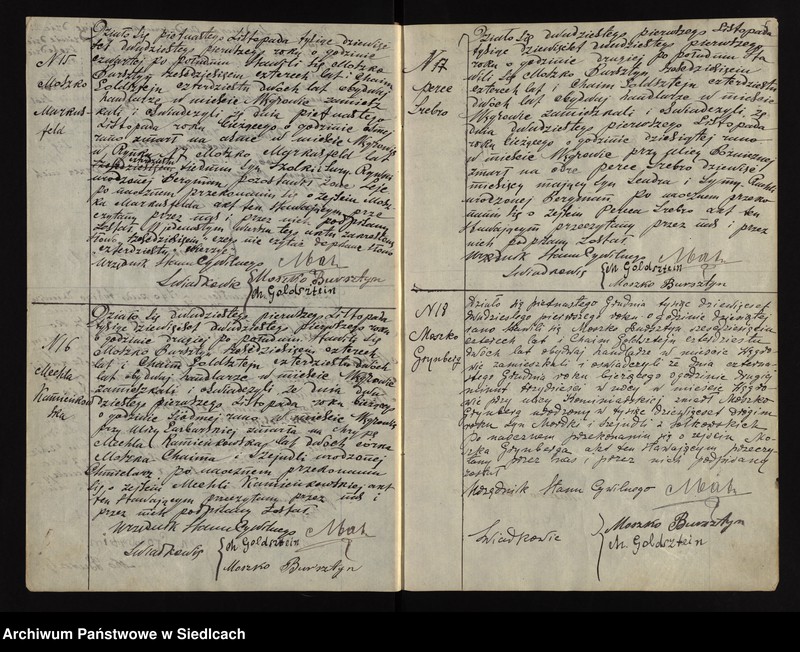 N 15
Moszko
Markus-
feld
Działo się piętnastego Listopada tysiąc dziewięć-
set dwudziestego pierwszego roku o godzinie
czwartej po południu stawili się Moszko
Bursztyn sześćdziesięciu czterech lat i Chaim
Goldsztejn czterdziestu dwóch lat obydwaj
handlarze w mieście Węgrowie zamiesz-
kali i oświadczyli że dnia piętnastego
Listopada roku bieżącego o godzinie
rano zmarł w mieście Węgrowie
w Rynku Moszko Markusfeld lat
siedmiu syn
urodzonej Bergman pozostawił żonę
po naocznem przekonaniu się o zejściu Mosz-
ka Markusfelda akt ten stawającym prze-
czytany przez nas i przez nich podpisany
został.
Urzędnik Stanu Cywilnego
Świadkowie Moszko Bursztyn
Ch Goldsztein
N 16
Mechla
Kamienkow-
ska
Działo się dwudziestego pierwszego Listopada
tysiąc dziewięćset dwudziestego pierwszego roku
o godzinie drugiej po południu stawili się
Moszko Bursztyn sześćdziesięciu czterech
lat i Chaim Goldsztejn czterdziestu dwóch
lat obydwaj handlarze w mieście Węgrowie
zamieszkali i oświadczyli że dnia dwu-
dziestego pierwszego Listopada roku bieżącego
o godzinie siódmej rano w mieście Węgrowie
przy ulicy Garbarskiej zmarła na
Mechla Kamienkowska lat dwóch córka
Moszka Chaima i Szejndli urodzonej
Chmielarz po naocznem przekonaniu
się o zejściu Mechli Kamienkowskiej akt
ten stawającym przeczytany przez nas i
przez nich podpisany został.
Urzędnik Stanu Cywilnego
Świadkowie Ch Goldsztein
Moszko Bursztyn
N 17
Perec
Srebro
Działo się dwudziestego pierwszego Listopada
tysiąc dziewięćset dwudziestego pierwszego
roku o godzinie drugiej po południu sta-
wili się Moszko Bursztyn sześćdziesięciu
czterech lat i Chaim Goldsztejn czterdziestu
dwóch lat obydwaj handlarze w mieście
Węgrowie zamieszkali i oświadczyli że
dnia dwudziestego pierwszego Listopada
roku bieżącego o godzinie dziesiątej rano
w mieście Węgrowie przy ulicy
zmarł na odrę Perec Srebro dziewięć
miesięcy mający syn Sendra i
urodzonej Bergman po naocznem przeko-
naniu się o zejściu Pereca Srebro akt ten
stawającym przeczytany przez nas i przez
nich podpisany został.
Urzędnik Stanu Cywilnego
Świadkowie Ch Goldsztein
Moszko Bursztyn
N 18
Moszko
Grynberg
Działo się piętnastego Grudnia tysiąc dziewięćset
dwudziestego pierwszego roku o godzinie dziesiątej
rano stawili się Moszko Bursztyn sześćdziesięciu
czterech lat i Chaim Goldsztejn czterdziestu
dwóch lat obydwaj handlarze w mieście Węgro-
wie zamieszkali i oświadczyli że dnia czterna-
stego Grudnia roku bieżącego o godzinie drugiej
minut trzydzieści w nocy w mieście Węgro-
wie przy ulicy Kominiarskiej zmarł Moszko
Grynberg urodzony w tysiąc dziewięćset drugim
roku syn Moszki i Szejndli z
Po naocznem przekonaniu się o zejściu Mo-
szka Grynberga akt ten stawającym przeczy-
tany przez nas i przez nich podpisany
został
Urzędnik Stanu Cywilnego
Świadkowie Moszko Bursztyn
Ch Goldsztein
Archiwum Państwowe w Siedlcach